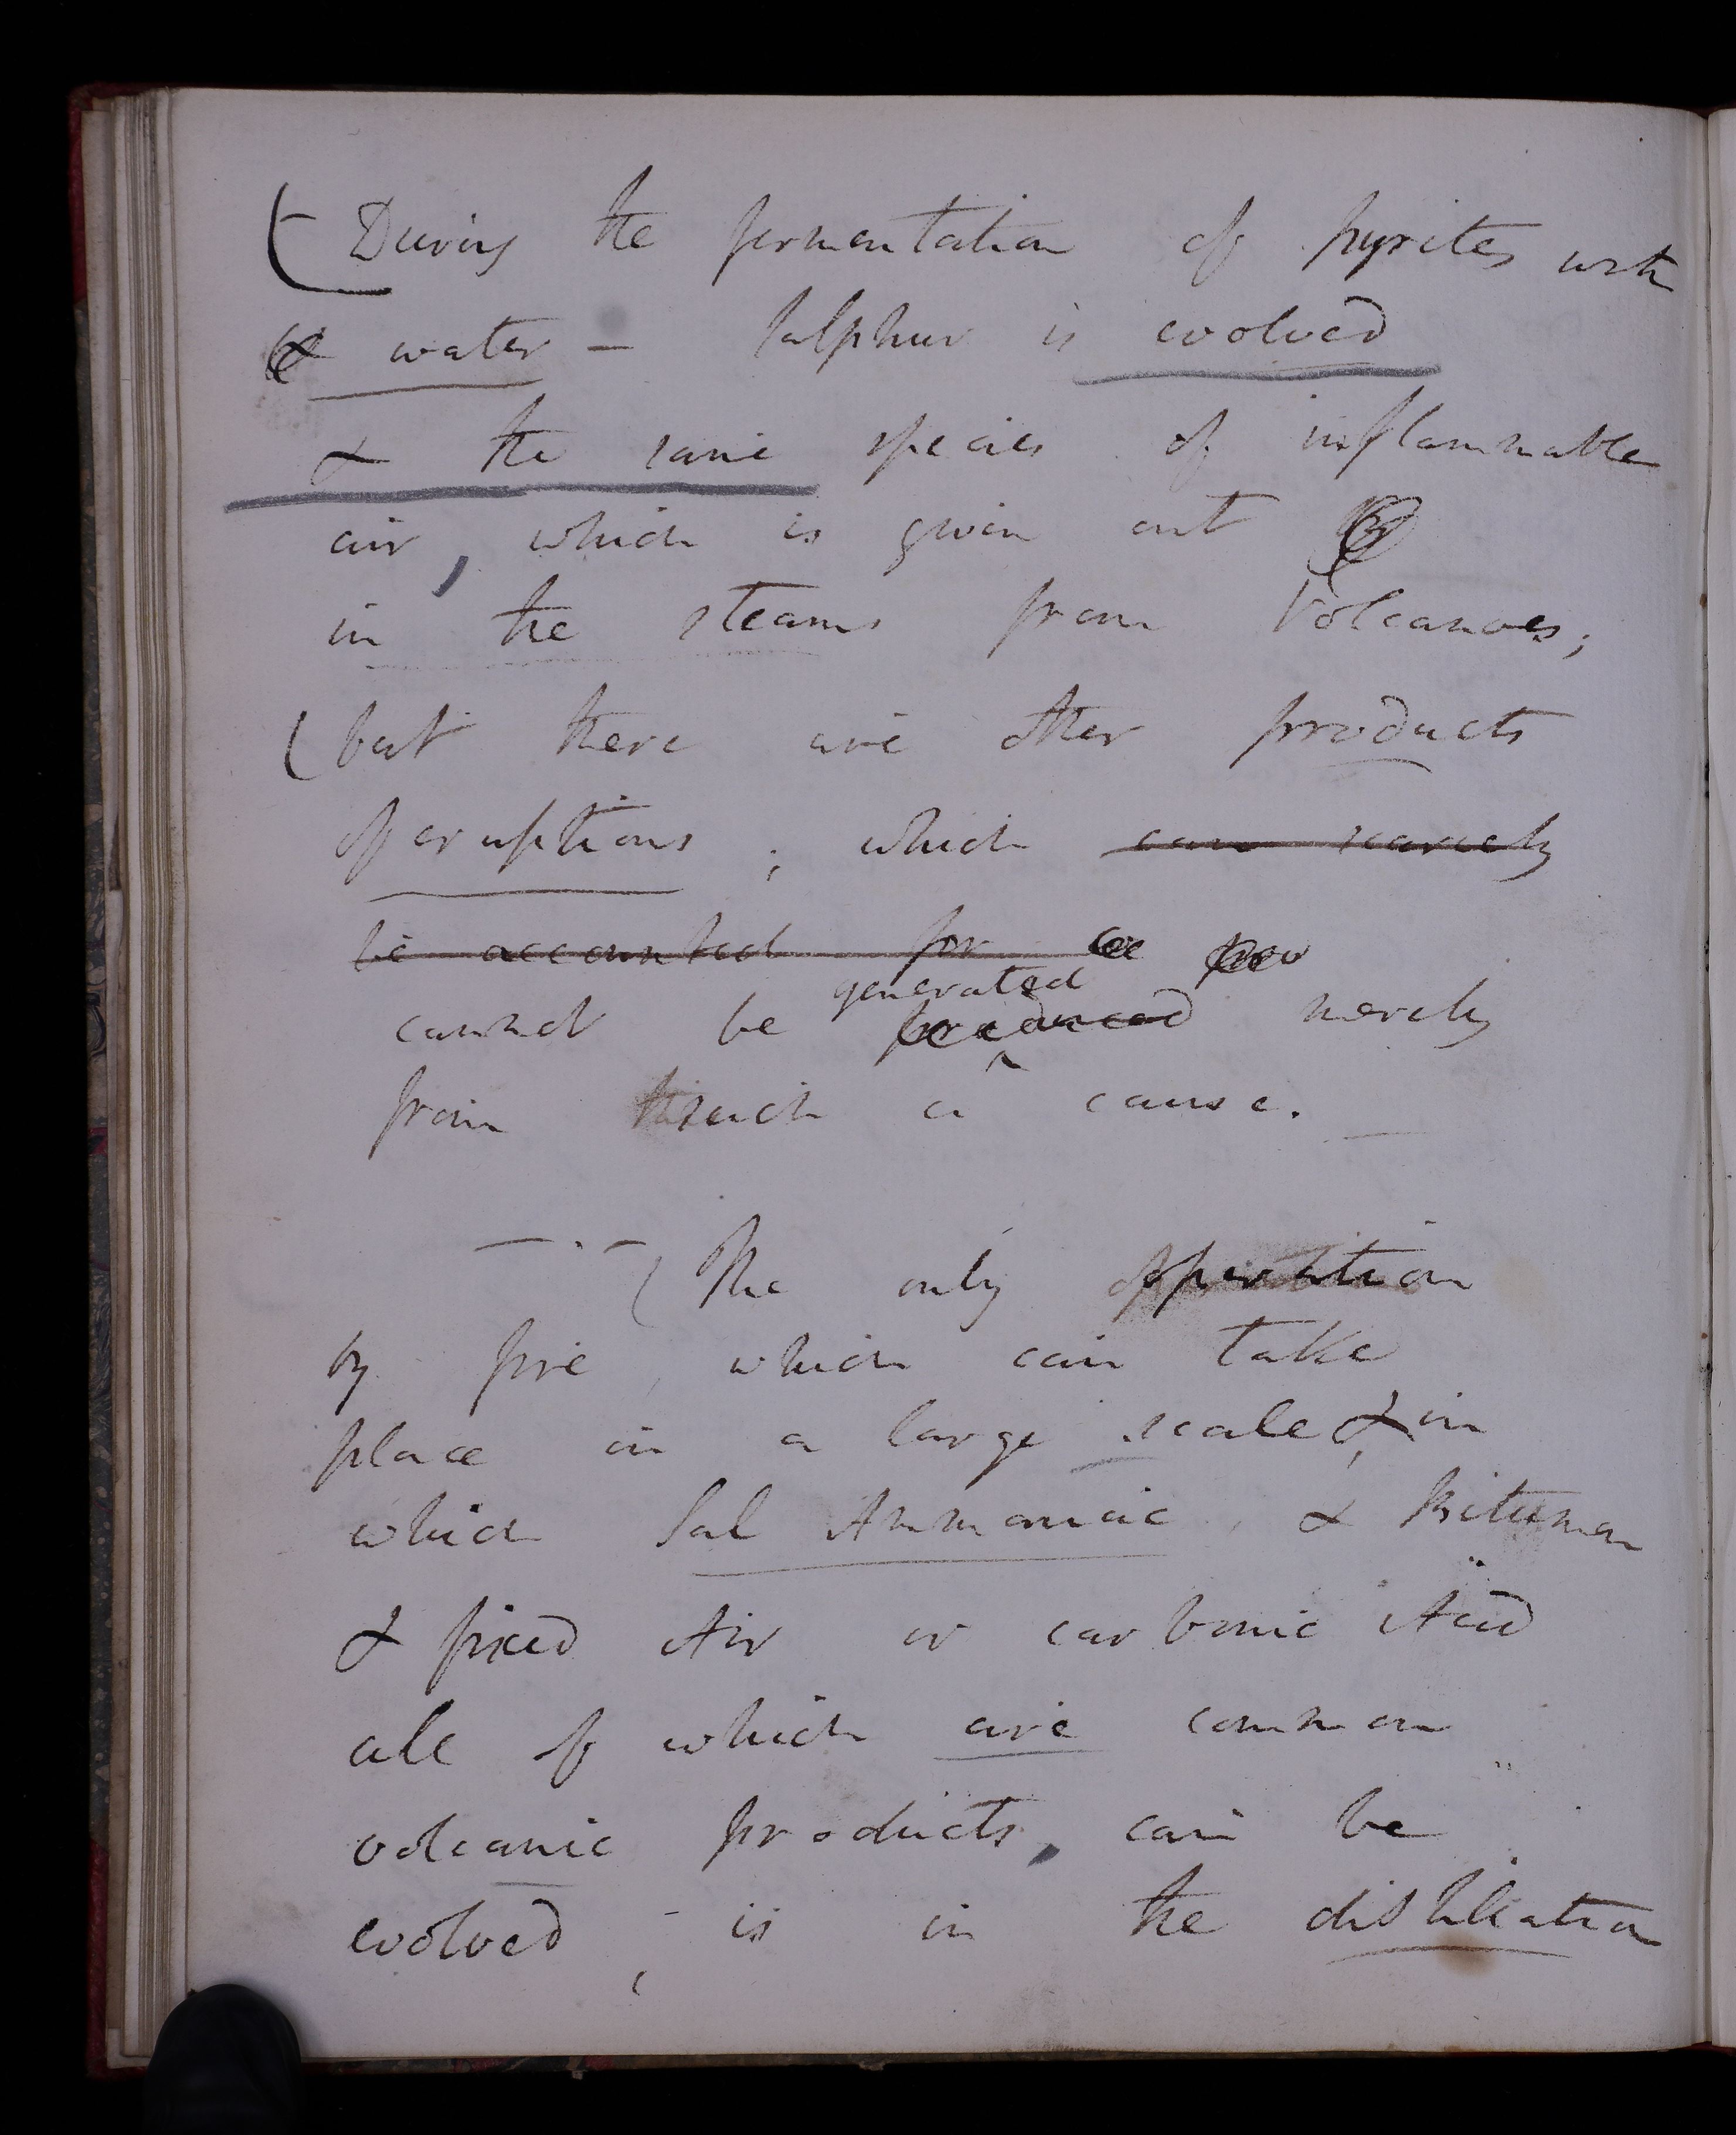 During the fermentation of pyrites with
& water – Sulphur is evolved
& the same species of inflammable
air, which is given out
in the steams from Volcanoes;
but there are other products
of eruptions; which can scarcely
be accounted for
generated
cannot be produced merely
from such a cause.
The only opperation
by fire, which can take
place in a large scale & in
which Sal Ammoniac, & Bitumen
& fixed Air or carbonic Acid
all of which are common
volcanic products, can be
evolved, – is in the distillation